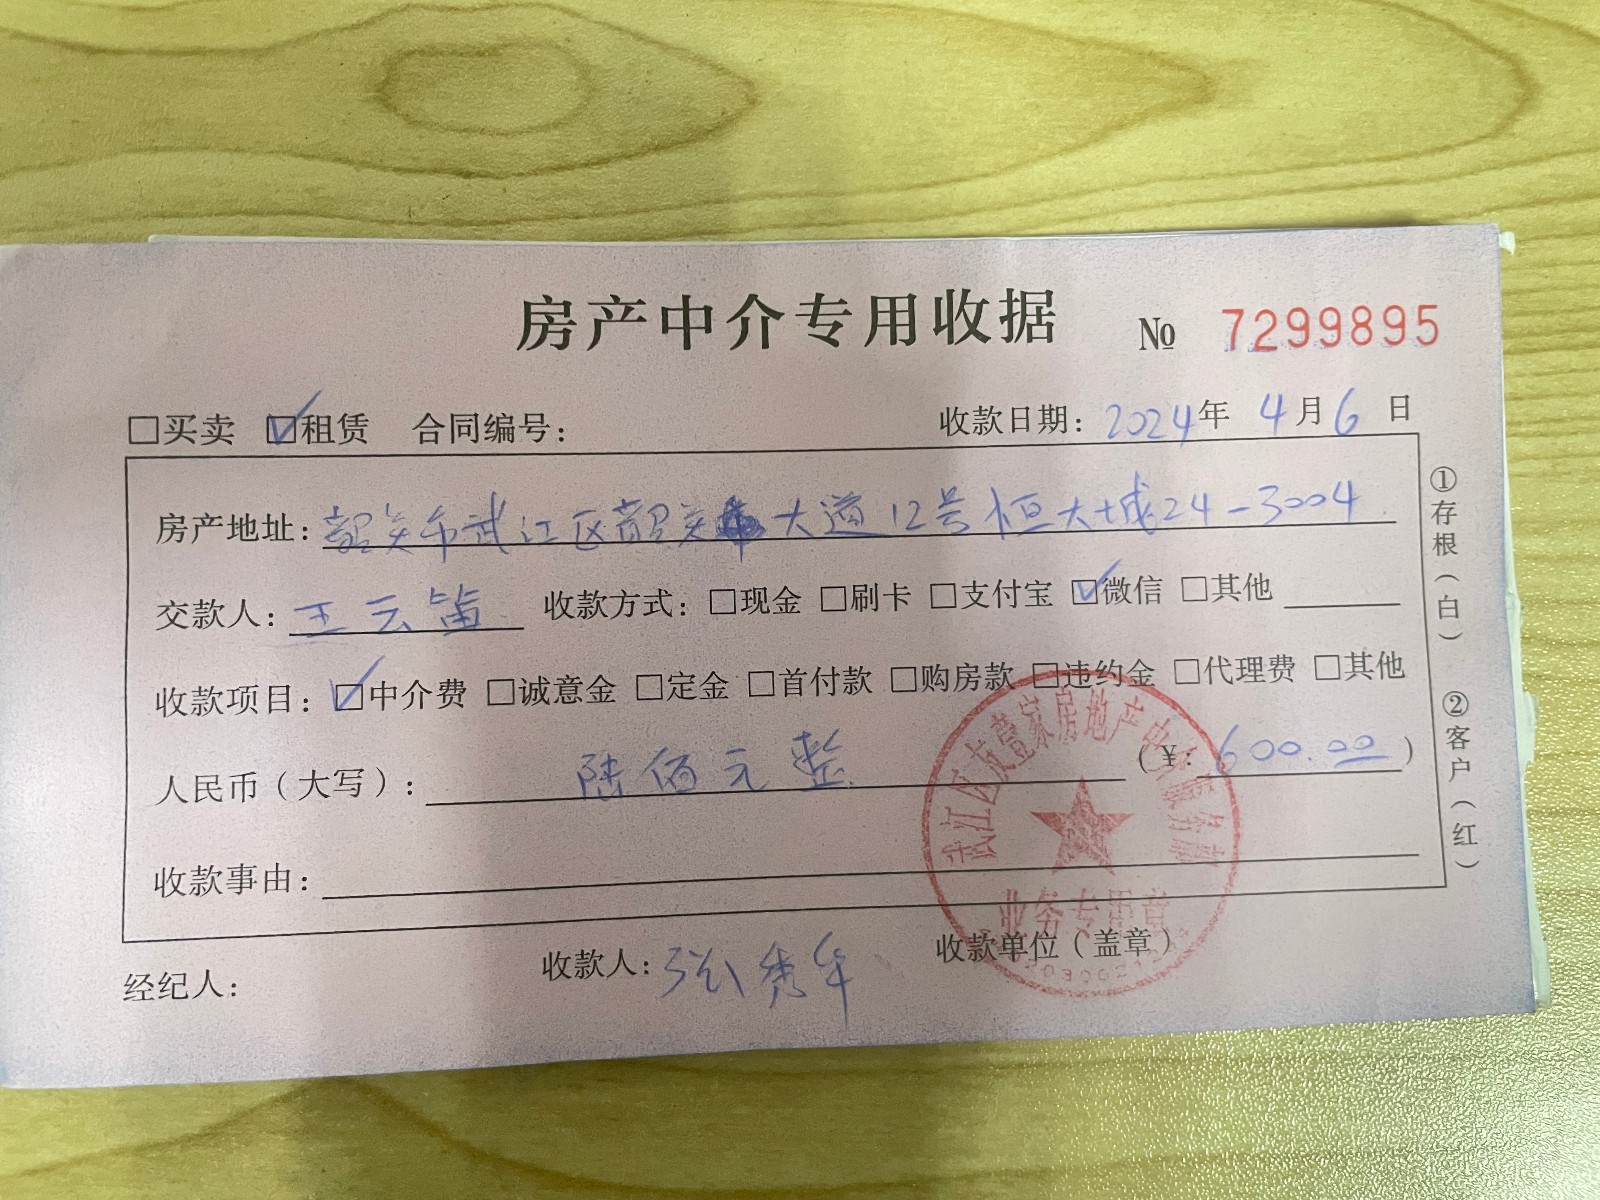 房产中介专用收据 № 7299895
□买卖 ☑租赁 合同编号： 收款日期：2024年 4月6日
房产地址：韶关市武江区韶关大道12号恒大城24-3004
交款人：王云笛 收款方式：□现金 □刷卡 □支付宝 ☑微信 □其他
收款项目：☑中介费 □诚意金 □定金 □首付款 □购房款 □违约金 □代理费 □其他
人民币（大写）：陆佰元整 （¥：600.00）
收款事由：
经纪人： 收款人：张秀华 收款单位（盖章）
①存根（白） ②客户（红）
武江区友壹家房地产中介服务部
业务专用章